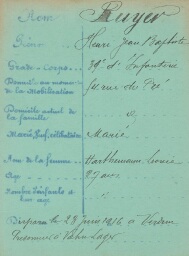 Nom Ruyer
Prénom Henri Jean Baptiste
Grade - Corps 39e d'Infanterie
Domicile au moment
de la Mobilisation
Domicile actuel de
la famille
Marié, Veuf, célibataire Marié
Nom de la femme
Age 27 ans
Nombre d'enfants et
leur age
Disparu le 23 juin 1916 à Verdun
Prisonnier à